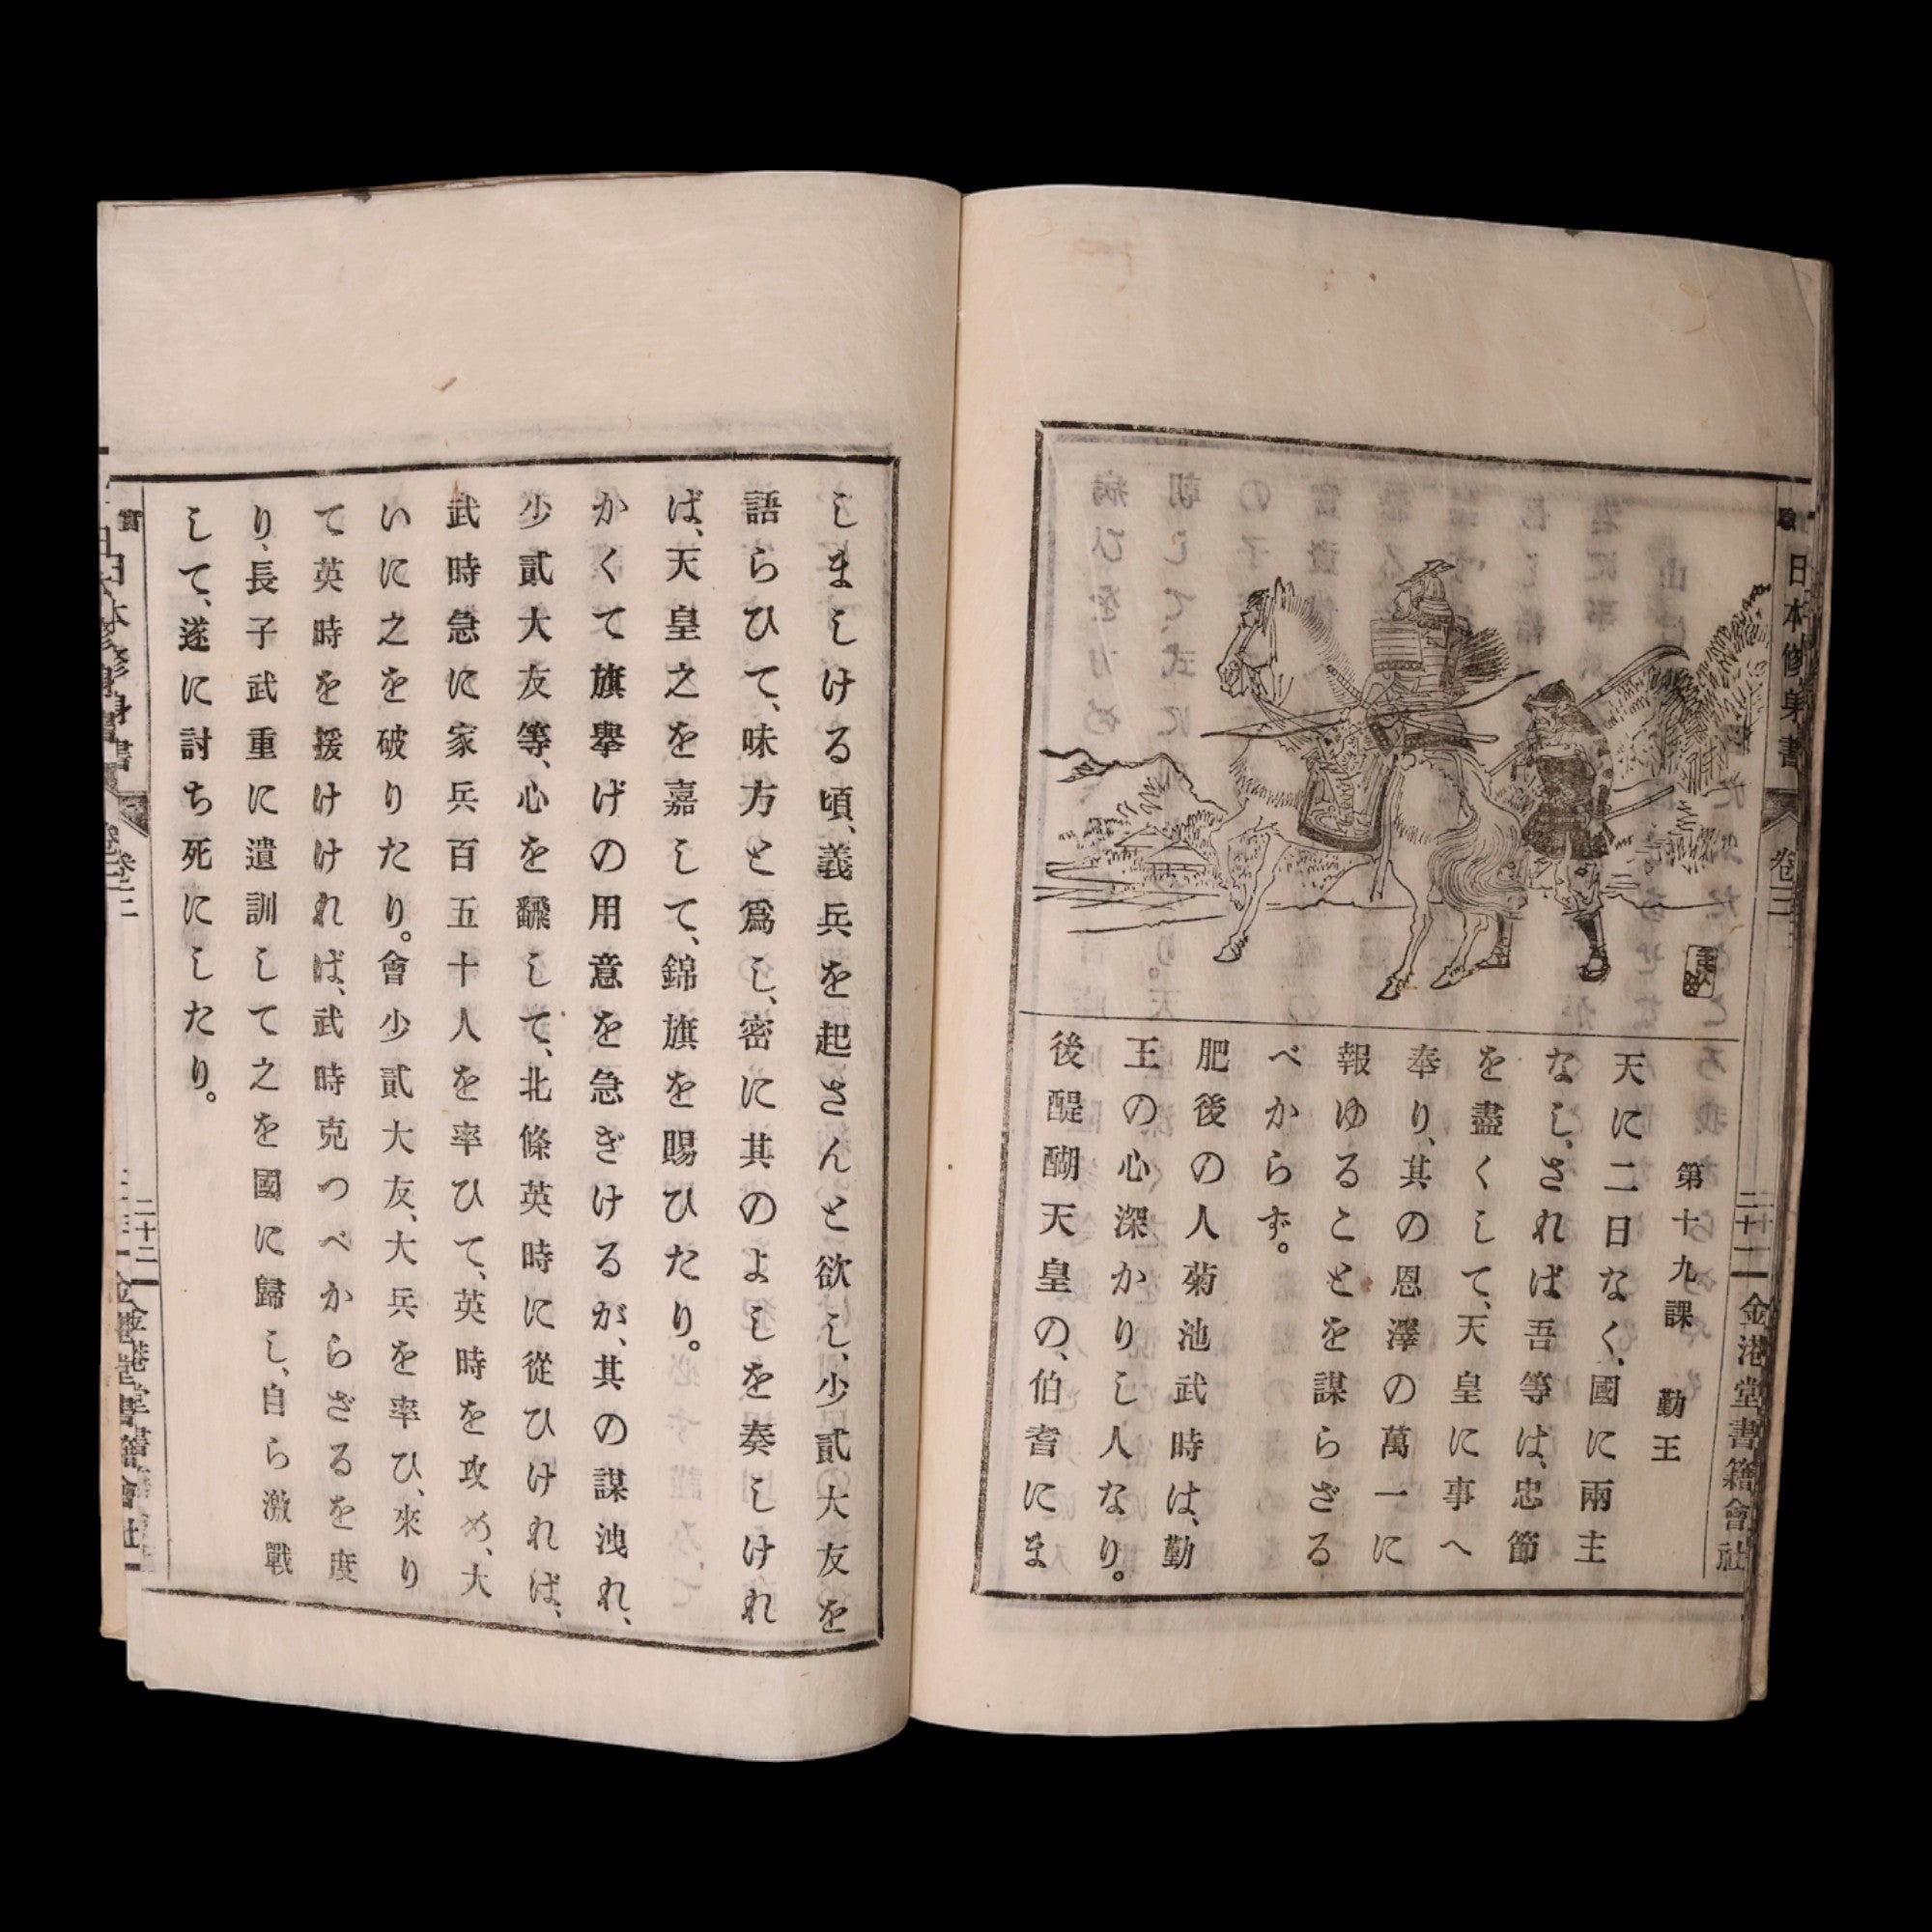 日本修身書
卷三
金港堂書籍會社
第十九課　勤王
天に二日なく、國に兩主
なし、されば吾等は、忠節
を盡くして、天皇に事へ
奉り、其の恩澤の萬一に
報ゆることを謀らざる
べからず。
肥後の人菊池武時は、勤
王の心深かりし人なり。
後醍醐天皇の、伯耆にま
しましける頃、義兵を起さんと欲し、少貳大友を
語らひて、味方と爲し、密に其のよしを奏しけれ
ば、天皇之を嘉して、錦旗を賜ひたり。
かくて旗擧げの用意を急ぎけるが、其の謀洩れ、
少貳大友等、心を飜して、北條英時に從ひければ、
武時急に家兵百五十人を率ひて、英時を攻め、大
いに之を破りたり。會少貳大友、大兵を率ひ、來り
て英時を援けければ、武時克つべからざるを度
り、長子武重に遺訓して之を國に歸し、自ら激戰
して、遂に討ち死にしたり。
二十二